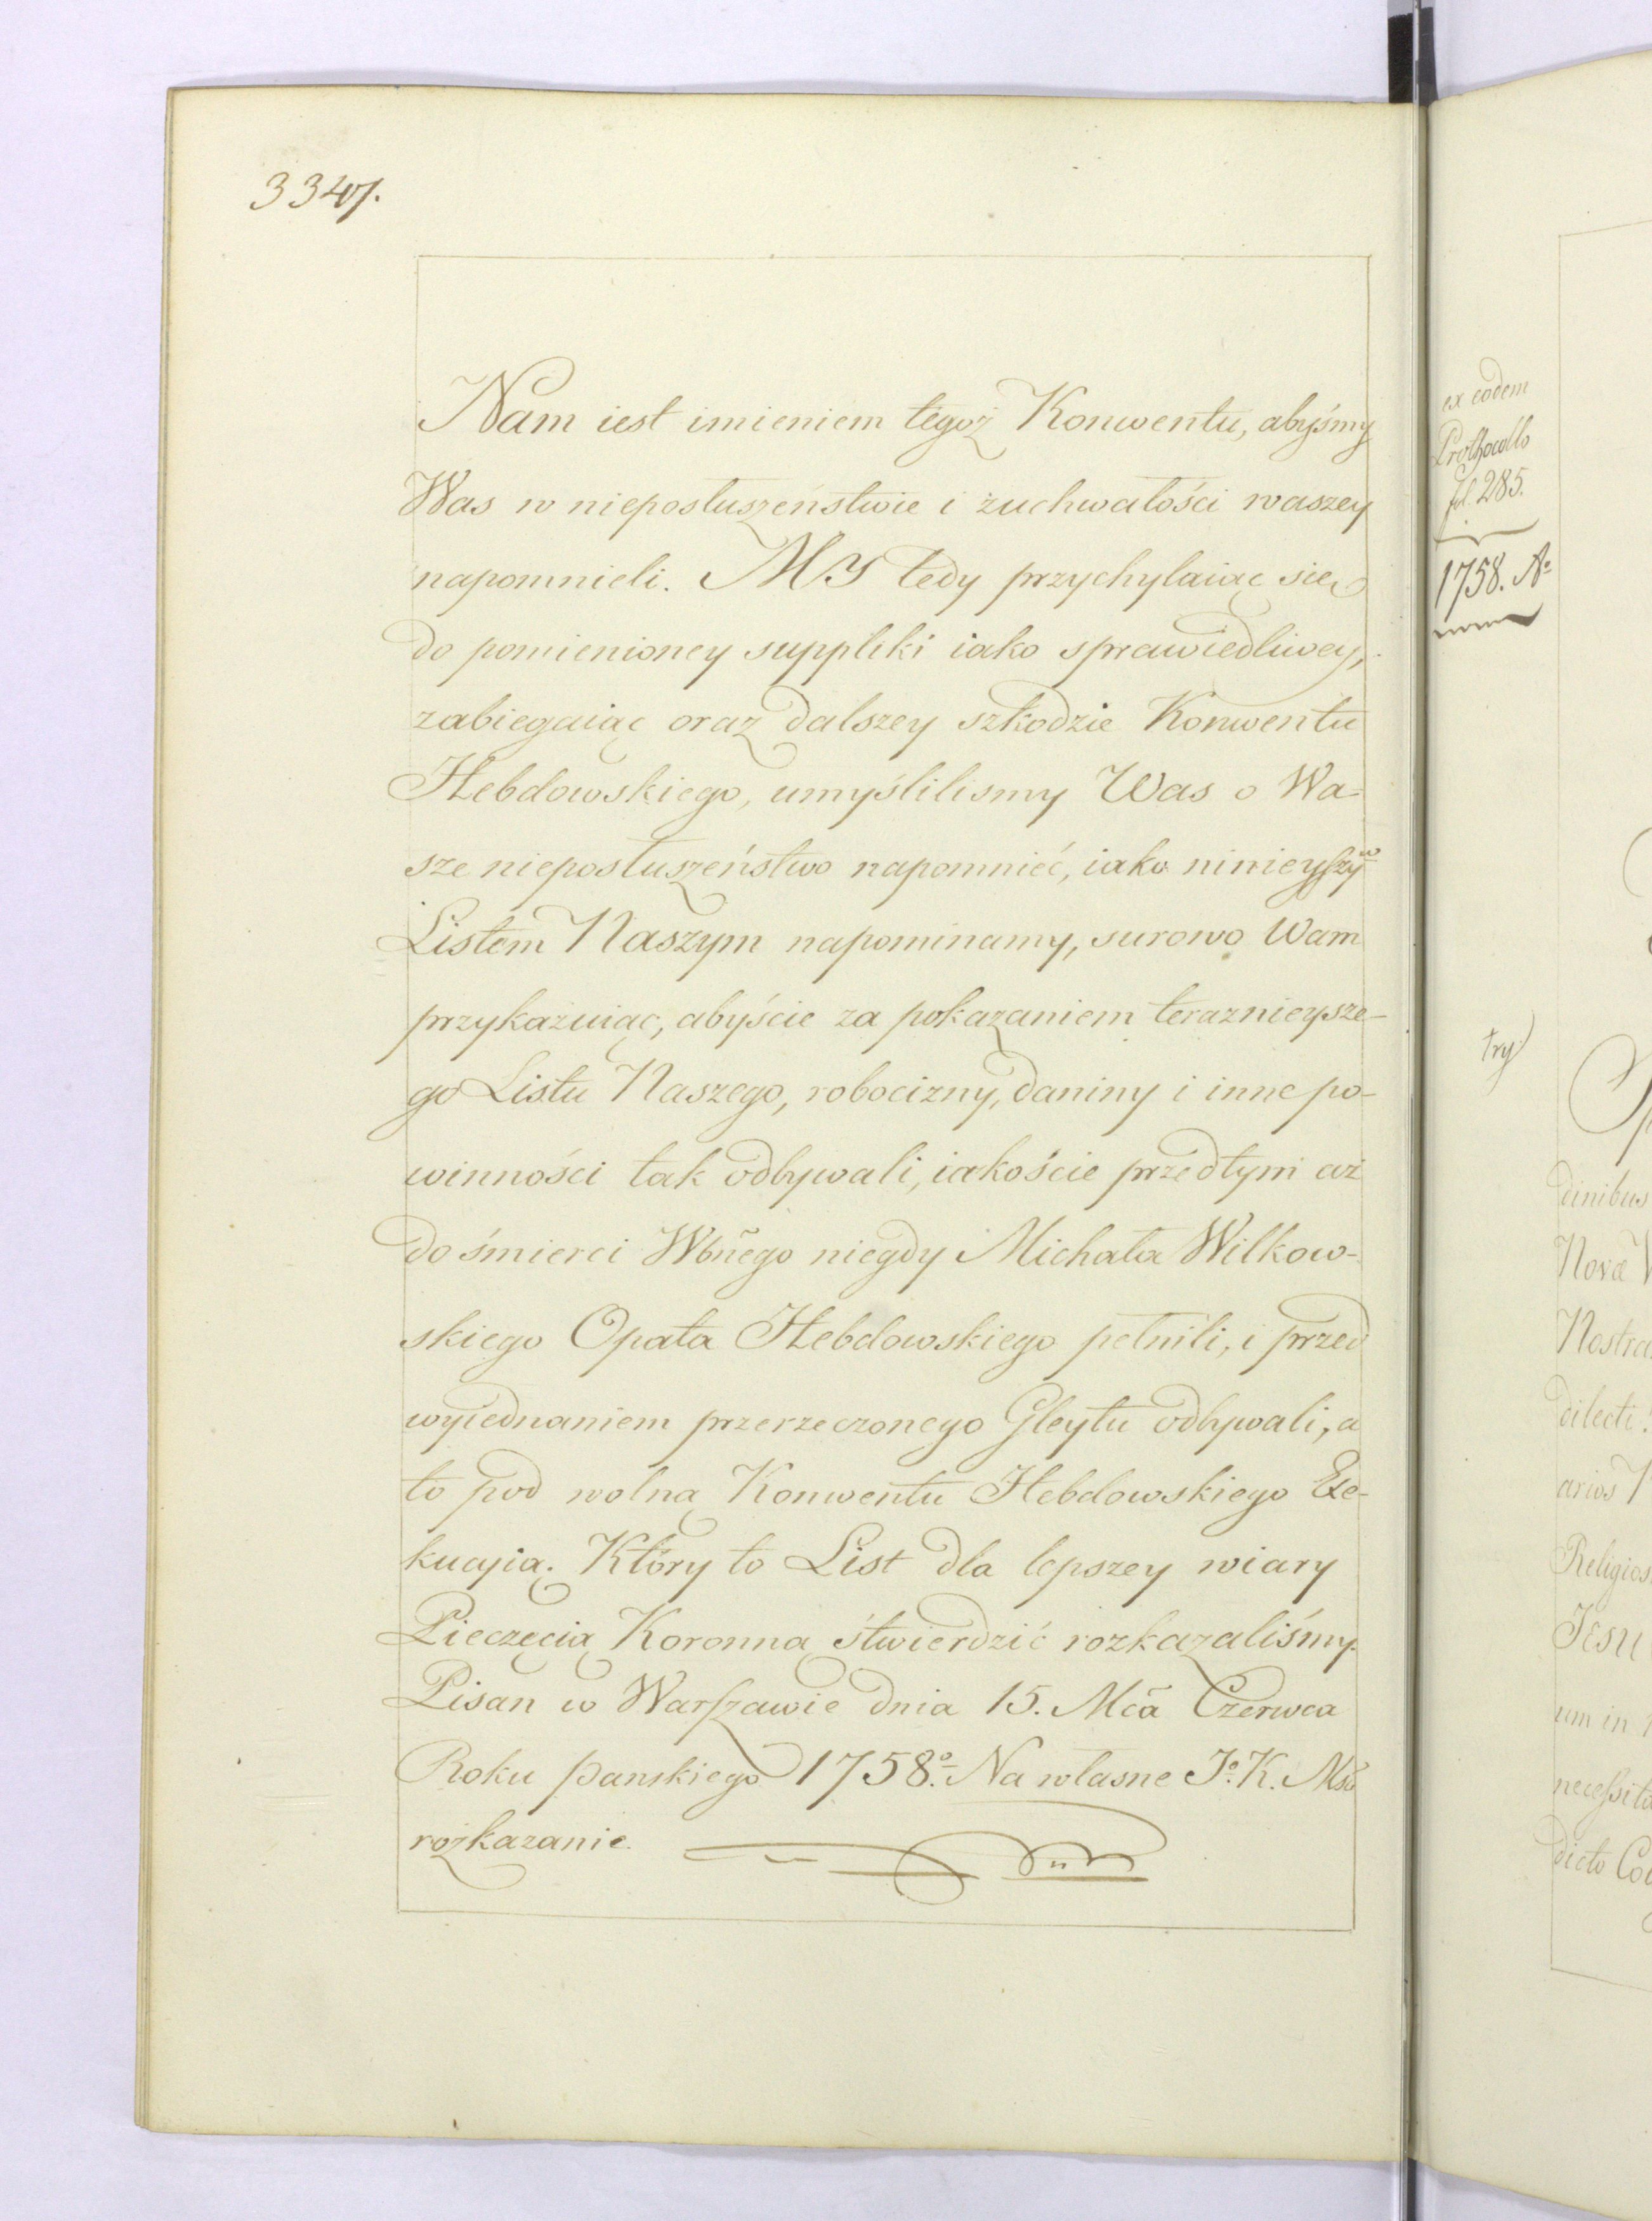 334.
Nam iest imieniem tegoż Konwentu, abyśmy
Was w nieposłuszeństwie i zuchwałości waszey
napomnieli. MY tedy przychylaiąc się
do pomienioney suppliki iako sprawiedliwey,
zabiegaiąc oraz dalszey szkodzie Konwentu
Hebdowskiego, umyślilismy Was o Wa=
sze nieposłuszeństwo napomnieć, iako ninieyszỹ
Listem Naszym napominamy, surowo Wam
przykazuiąc, abyście za pokazaniem teraznieysze-
go Listu Naszego, robocizny, daniny i inne po-
winności tak odbywali, iakoście przedtym aż
do śmierci Wbñego niegdy Michała Wilkow-
skiego Opata Hebdowskiego pełnili, i przed
wyiednaniem przerzeczonego Gleytu odbywali, a
to pod wolną Konwentu Hebdowskiego Exe-
kucyią. Który to List dla lepszey wiary
Pieczęcią Koronną stwierdzić rozkazaliśmy.
Pisan w Warszawie dnia 15. Mca Czerwca
Roku Panskiego 1758.º Na własne Jº. K. Mści
rozkazanie.
ex eodem
Prothocollo
fol. 285.
1758. Aº
try
dinibus
Novæ
dilecti
arios
Religios
JESU
um in
necessita
dicto